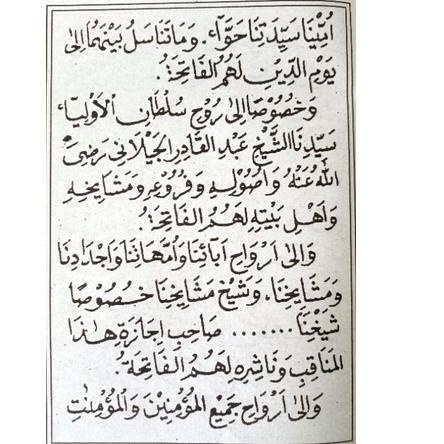 اُمِّنَا سَيِّدَتِنَا حَوَّآءَ. وَمَا تَنَاسَلَ بَيْنَهُمَا اِلٰى
يَوْمِ الدِّيْنِ لَهُمُ الْفَاتِحَةُ.
وَخُصُوْصًا اِلٰى رُوْحِ سُلْطَانِ الْاَوْلِيَآءِ
سَيِّدِنَا الشَّيْخِ عَبْدِ الْقَادِرِ الْجَيْلَانِى رَضِىَ
اللّٰهُ عَنْهُ وَاُصُوْلِهِ وَفُرُوْعِهِ وَمَشَايِخِهِ
وَاَهْلِ بَيْتِهِ لَهُمُ الْفَاتِحَةُ.
وَاِلٰى اَرْوَاحِ اٰبَآئِنَا وَاُمَّهَاتِنَا وَاَجْدَادِنَا
وَمَشَايِخِنَا. وَشَيْخِ مَشَايِخِنَا خُصُوْصًا
شَيْخِنَا ....... صَاحِبِ اِجَازَةِ هٰذَا
الْمَنَاقِبِ وَنَاشِرِهِ لَهُمُ الْفَاتِحَةُ.
وَاِلٰى اَرْوَاحِ جَمِيْعِ الْمُؤْمِنِيْنَ وَالْمُؤْمِنٰتِ